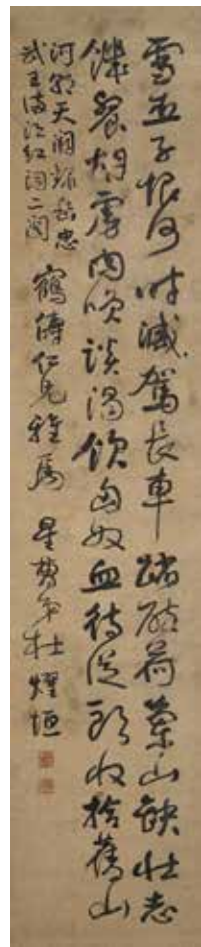 雪臣子恨何時滅駕長車踏破荷蘭山缺壯志
饑餐胡虜肉笑談渴飲匈奴血待從頭收拾舊山
河朝天闕錄岳忠
武王滿江紅詞二闋
鶴儔仁兄雅屬 星 弟杜燿垣